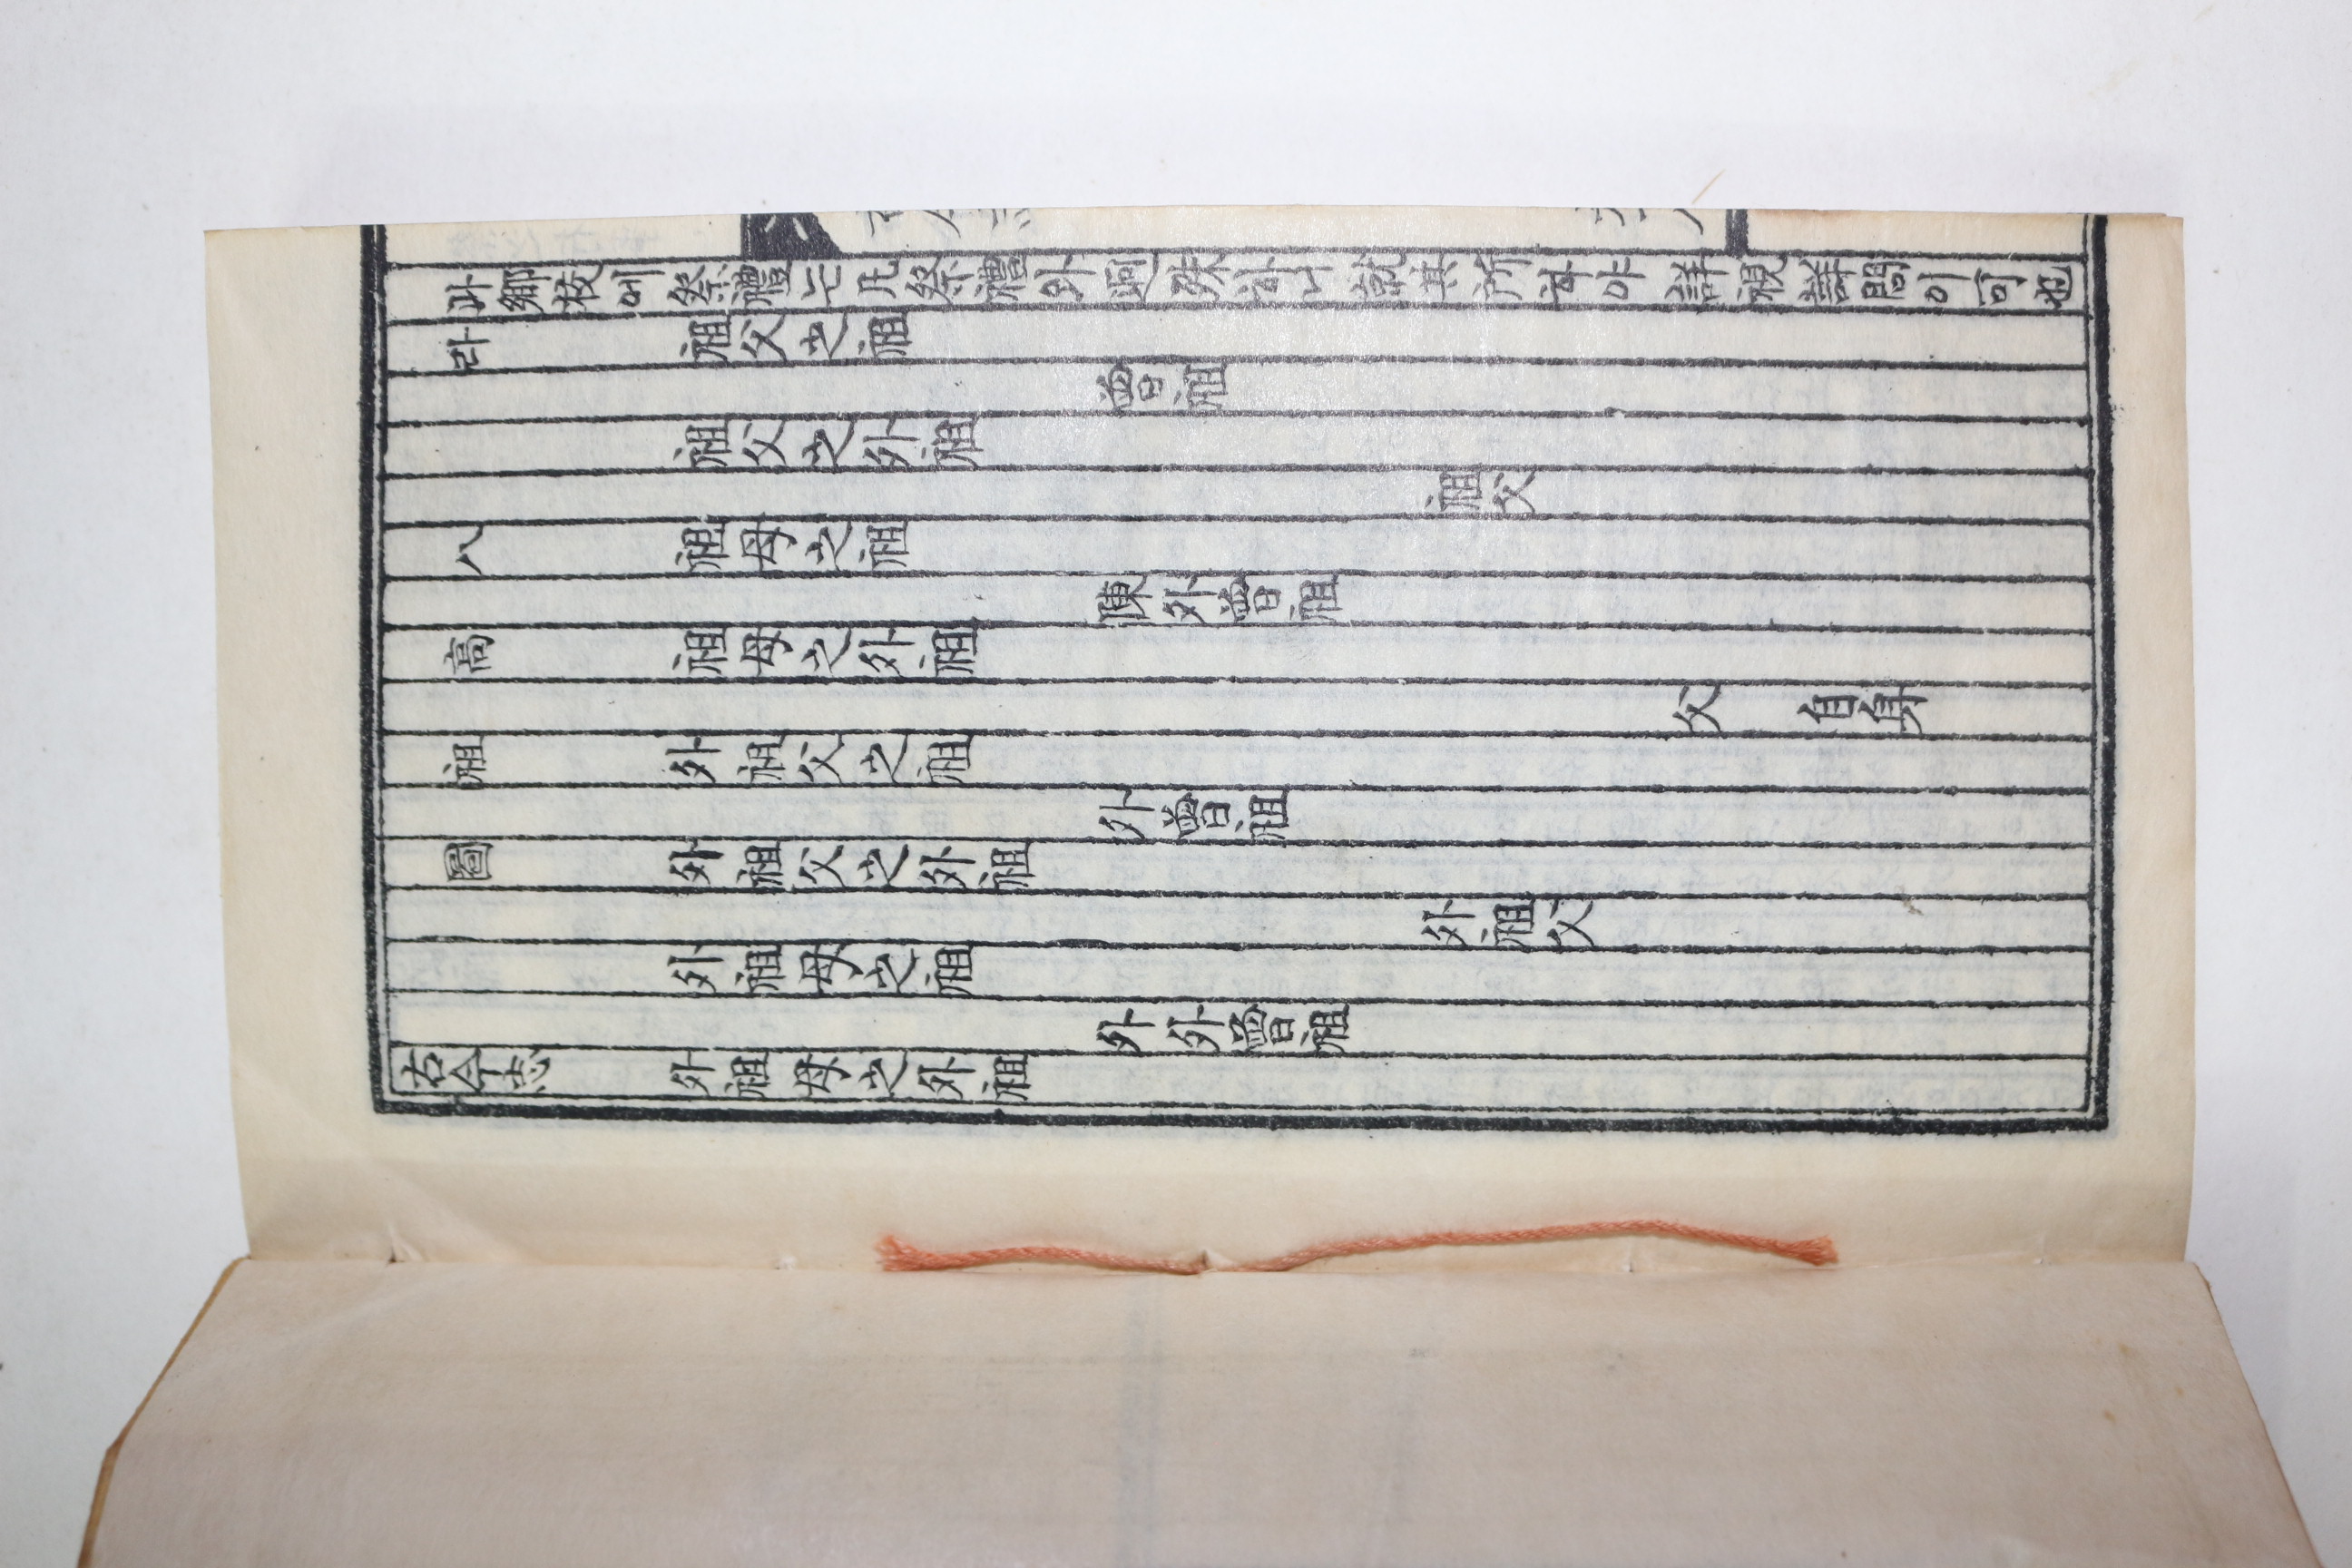 바 鄕校에 祭禮는 凡祭禮外 逈殊하니 就其所하야 詳視詳問이 可也
라 祖父之祖
曾祖
祖父之外祖
祖父
八 祖母之祖
陳外曾祖
高 祖母之外祖
父 自身
祖 外祖父之祖
外曾祖
圖 外祖父之外祖
外祖父
外祖母之祖
外外曾祖
外祖母之外祖